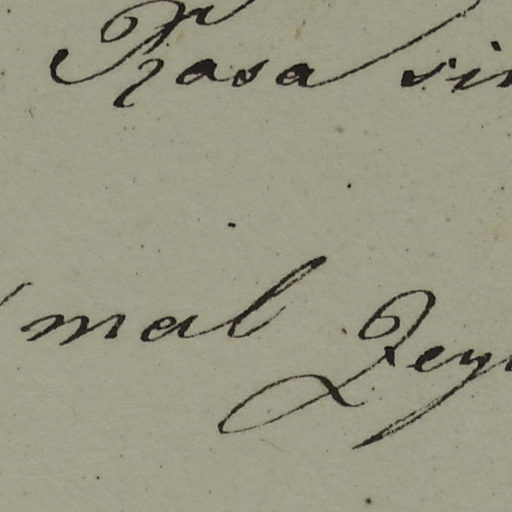 Rasa sin
mal Zey